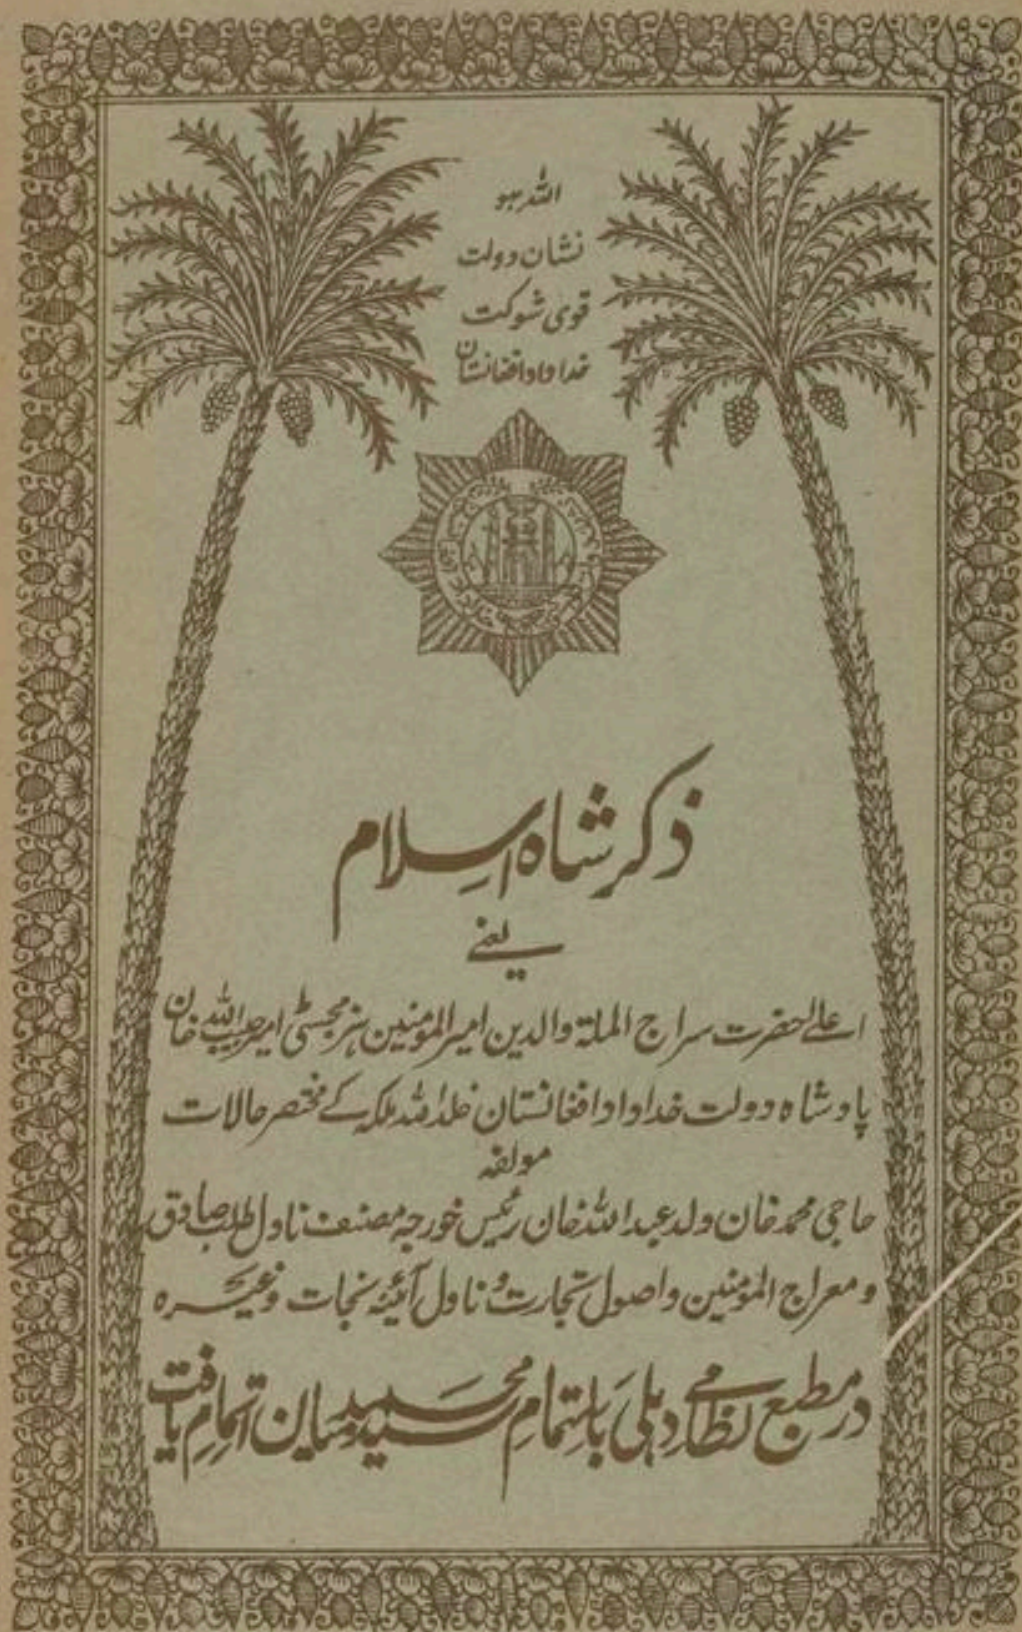 اللہ ہو
نشان دولت
قوی شوکت
خداداد افغانستان
ذکر شاہ اسلام
یعنے
اعلےٰحضرت سراج الملۃ والدین امیر المومنین ہز مجسٹی امیر حبیب اللہ خان
پادشاہ دولت خداداد افغانستان خلد اللہ ملکہ کے مختصر حالات
مولفہ
حاجی محمد خان ولد عبد اللہ خان رئیس خورجہ مصنف ناول طلب صادق
و معراج المومنین و اصول تجارت و ناول آئینہ نجات وغیرہ
در مطبع نظامی دہلی باہتمام محمد سید میان اتمام یافت